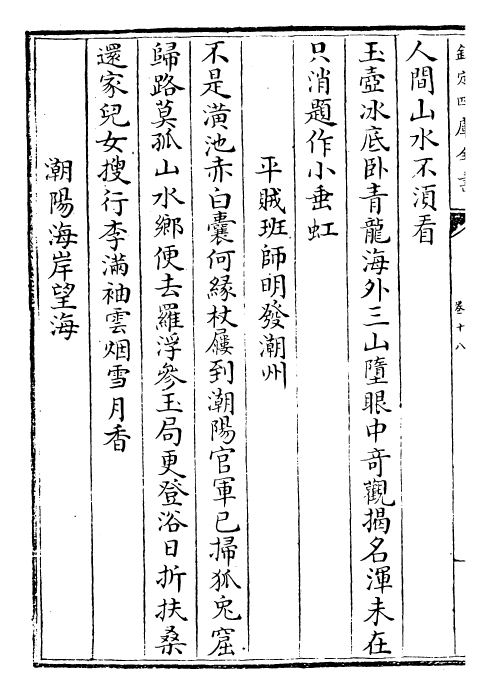 欽定四庫全書
卷十八
人間山水不湏看
玉壺冰底卧青龍海外三山墮眼中竒觀揭名渾未在
只消題作小垂虹
平賊班師明發潮州
不是潢池赤白囊何縁杖屨到潮陽官軍已掃狐兎窟
歸路莫孤山水鄉便去羅浮參玉局更登浴日折扶桑
還家兒女搜行李滿袖雲烟雪月香
潮陽海岸望海